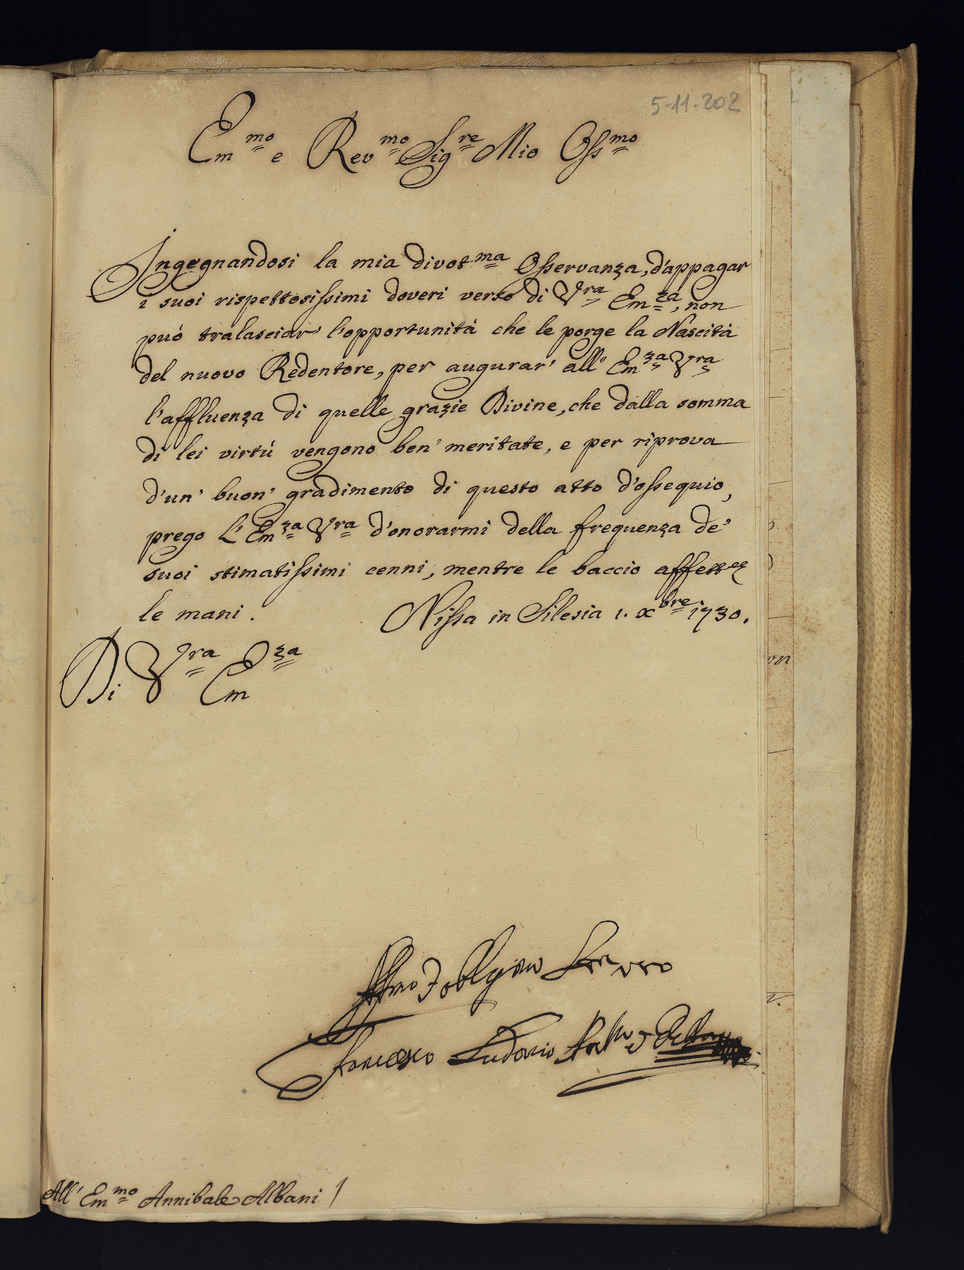 5-11-202
Em.mo e Rev.mo Sig.re Mio Oss.mo
Ingegnandosi la mia divot.ma Osservanza, d'appagar
i suoi rispettosissimi doveri verso di V.ra Em.za, non
può tralasciar l'opportunità che le porge la Nascità
del nuovo Redentore, per augurar' all' Em.za V.ra
l'affluenza di quelle grazie Divine, che dalla somma
di lei virtù vengono ben' meritate, e per riprova
d'un' buon' gradimento di questo atto d'ossequio,
prego L'Em.za V.ra d'onorarmi della frequenza de'
suoi stimatissimi cenni, mentre le baccio affett.e
le mani. Nissa in Silesia 1. Xbre 1730.
Di V.ra Em.za
Francesco Ludovico
All' Em.mo Annibale Albani